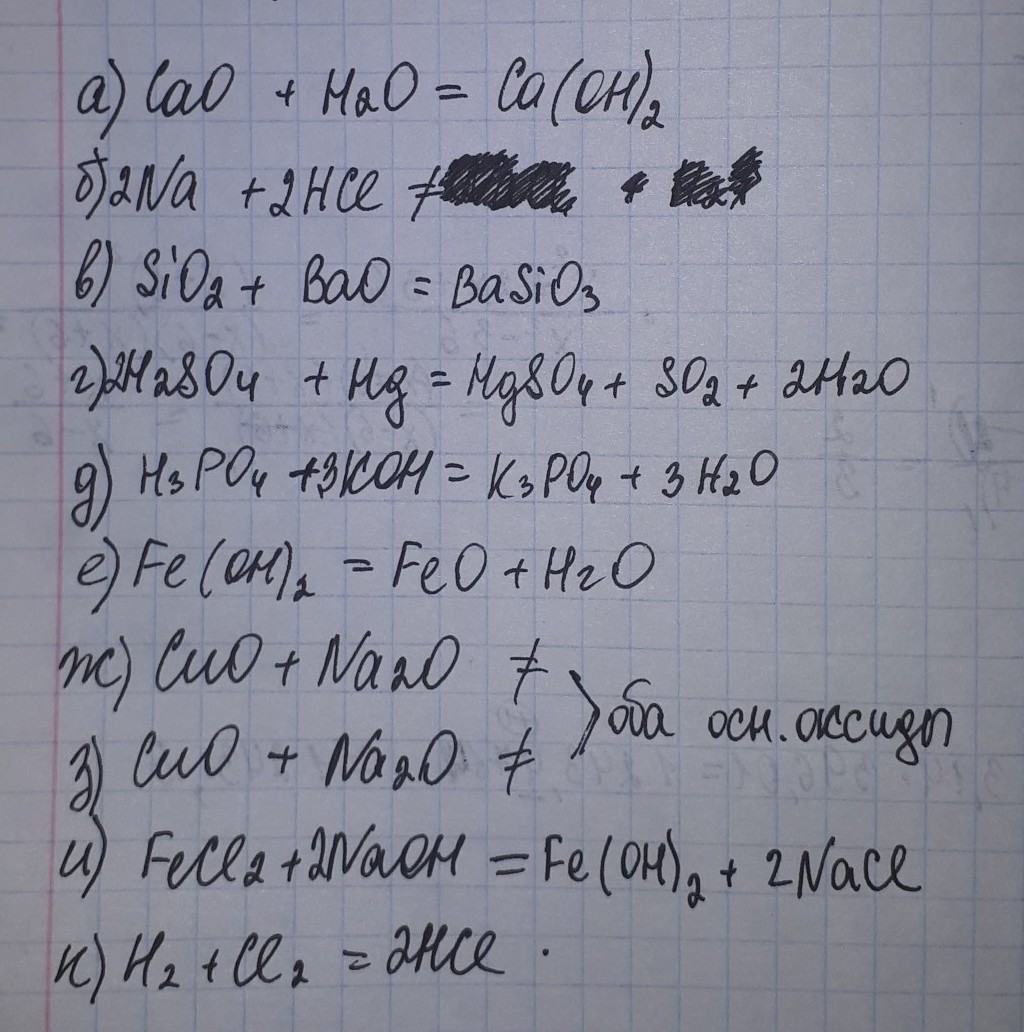 а) CaO + H2O = Ca(OH)2
б) 2Na + 2HCl ≠ +
в) SiO2 + BaO = BaSiO3
г) 2H2SO4 + Hg = HgSO4 + SO2 + 2H2O
д) H3PO4 + 3KOH = K3PO4 + 3H2O
е) Fe(OH)2 = FeO + H2O
ж) CuO + Na2O ≠
оба осн. оксиды
з) CuO + Na2O ≠
и) FeCl2 + 2NaOH = Fe(OH)2 + 2NaCl
к) H2 + Cl2 = 2HCl .